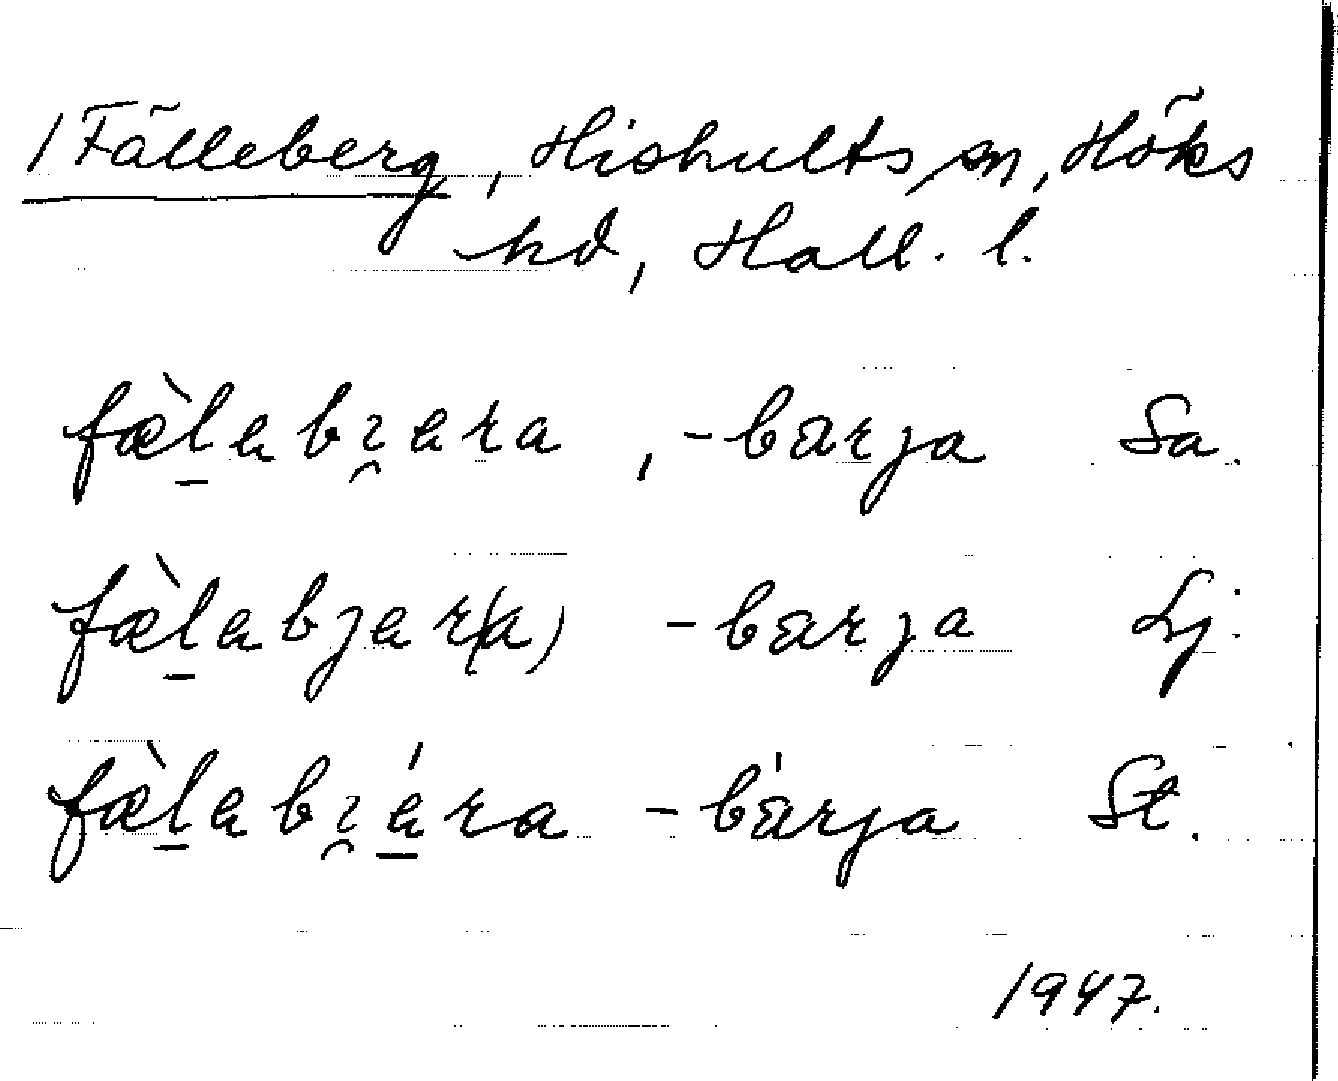 1 Fälleberg, Hishults sn, Höks
hd, Hall. l.
fæ̀l̠abi̯ara, -barja Sa.
fæ̀l̠abjar(a) -barja Lj.
fæ̀l̠abi̯á̠ra -bárja St.
1947.